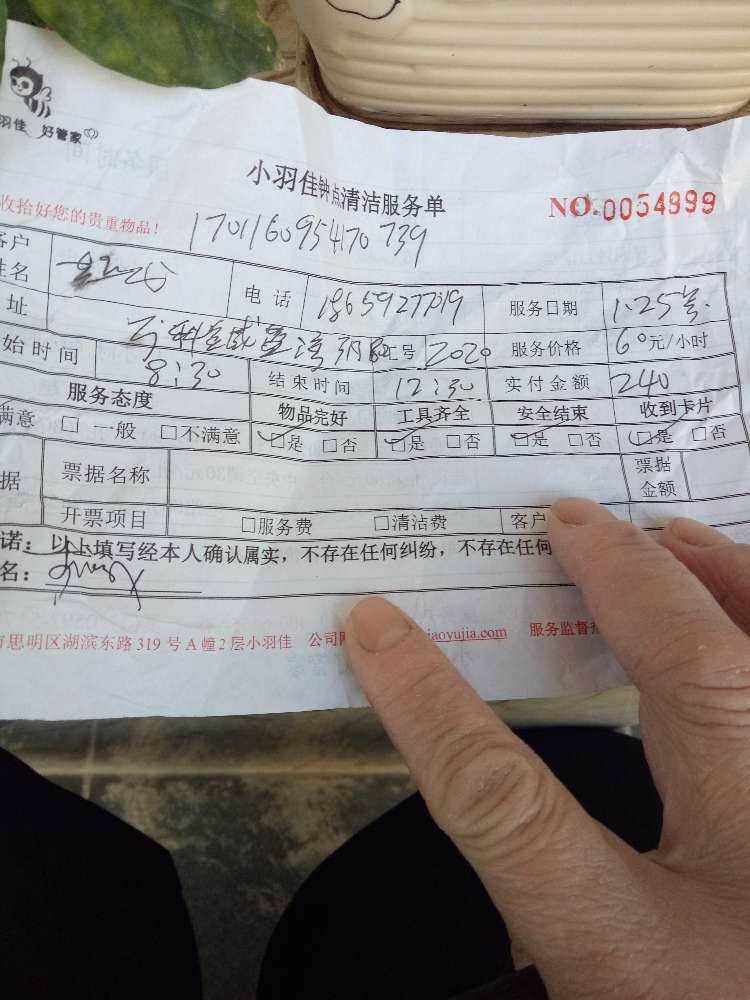 羽佳 好管家
小羽佳钟点清洁服务单
NO.0054999
收拾好您的贵重物品!
1701160954170739
客户姓名 电话 18659277019 服务日期 1.25号
址 工号 2020 服务价格 60元/小时
始时间 8:30 结束时间 12:30 实付金额 240
服务态度 物品完好 工具齐全 安全结束 收到卡片
满意 □ 一般 □不满意 □是 □否 □是 □否 □是 □否 □是 □否
据 票据名称 票据金额
开票项目 □服务费 □清洁费 客户
诺:以上填写经本人确认属实,不存在任何纠纷,不存在任何
名:
思明区湖滨东路 319 号 A 幢 2 层小羽佳 公司 iaoyujia.com 服务监督